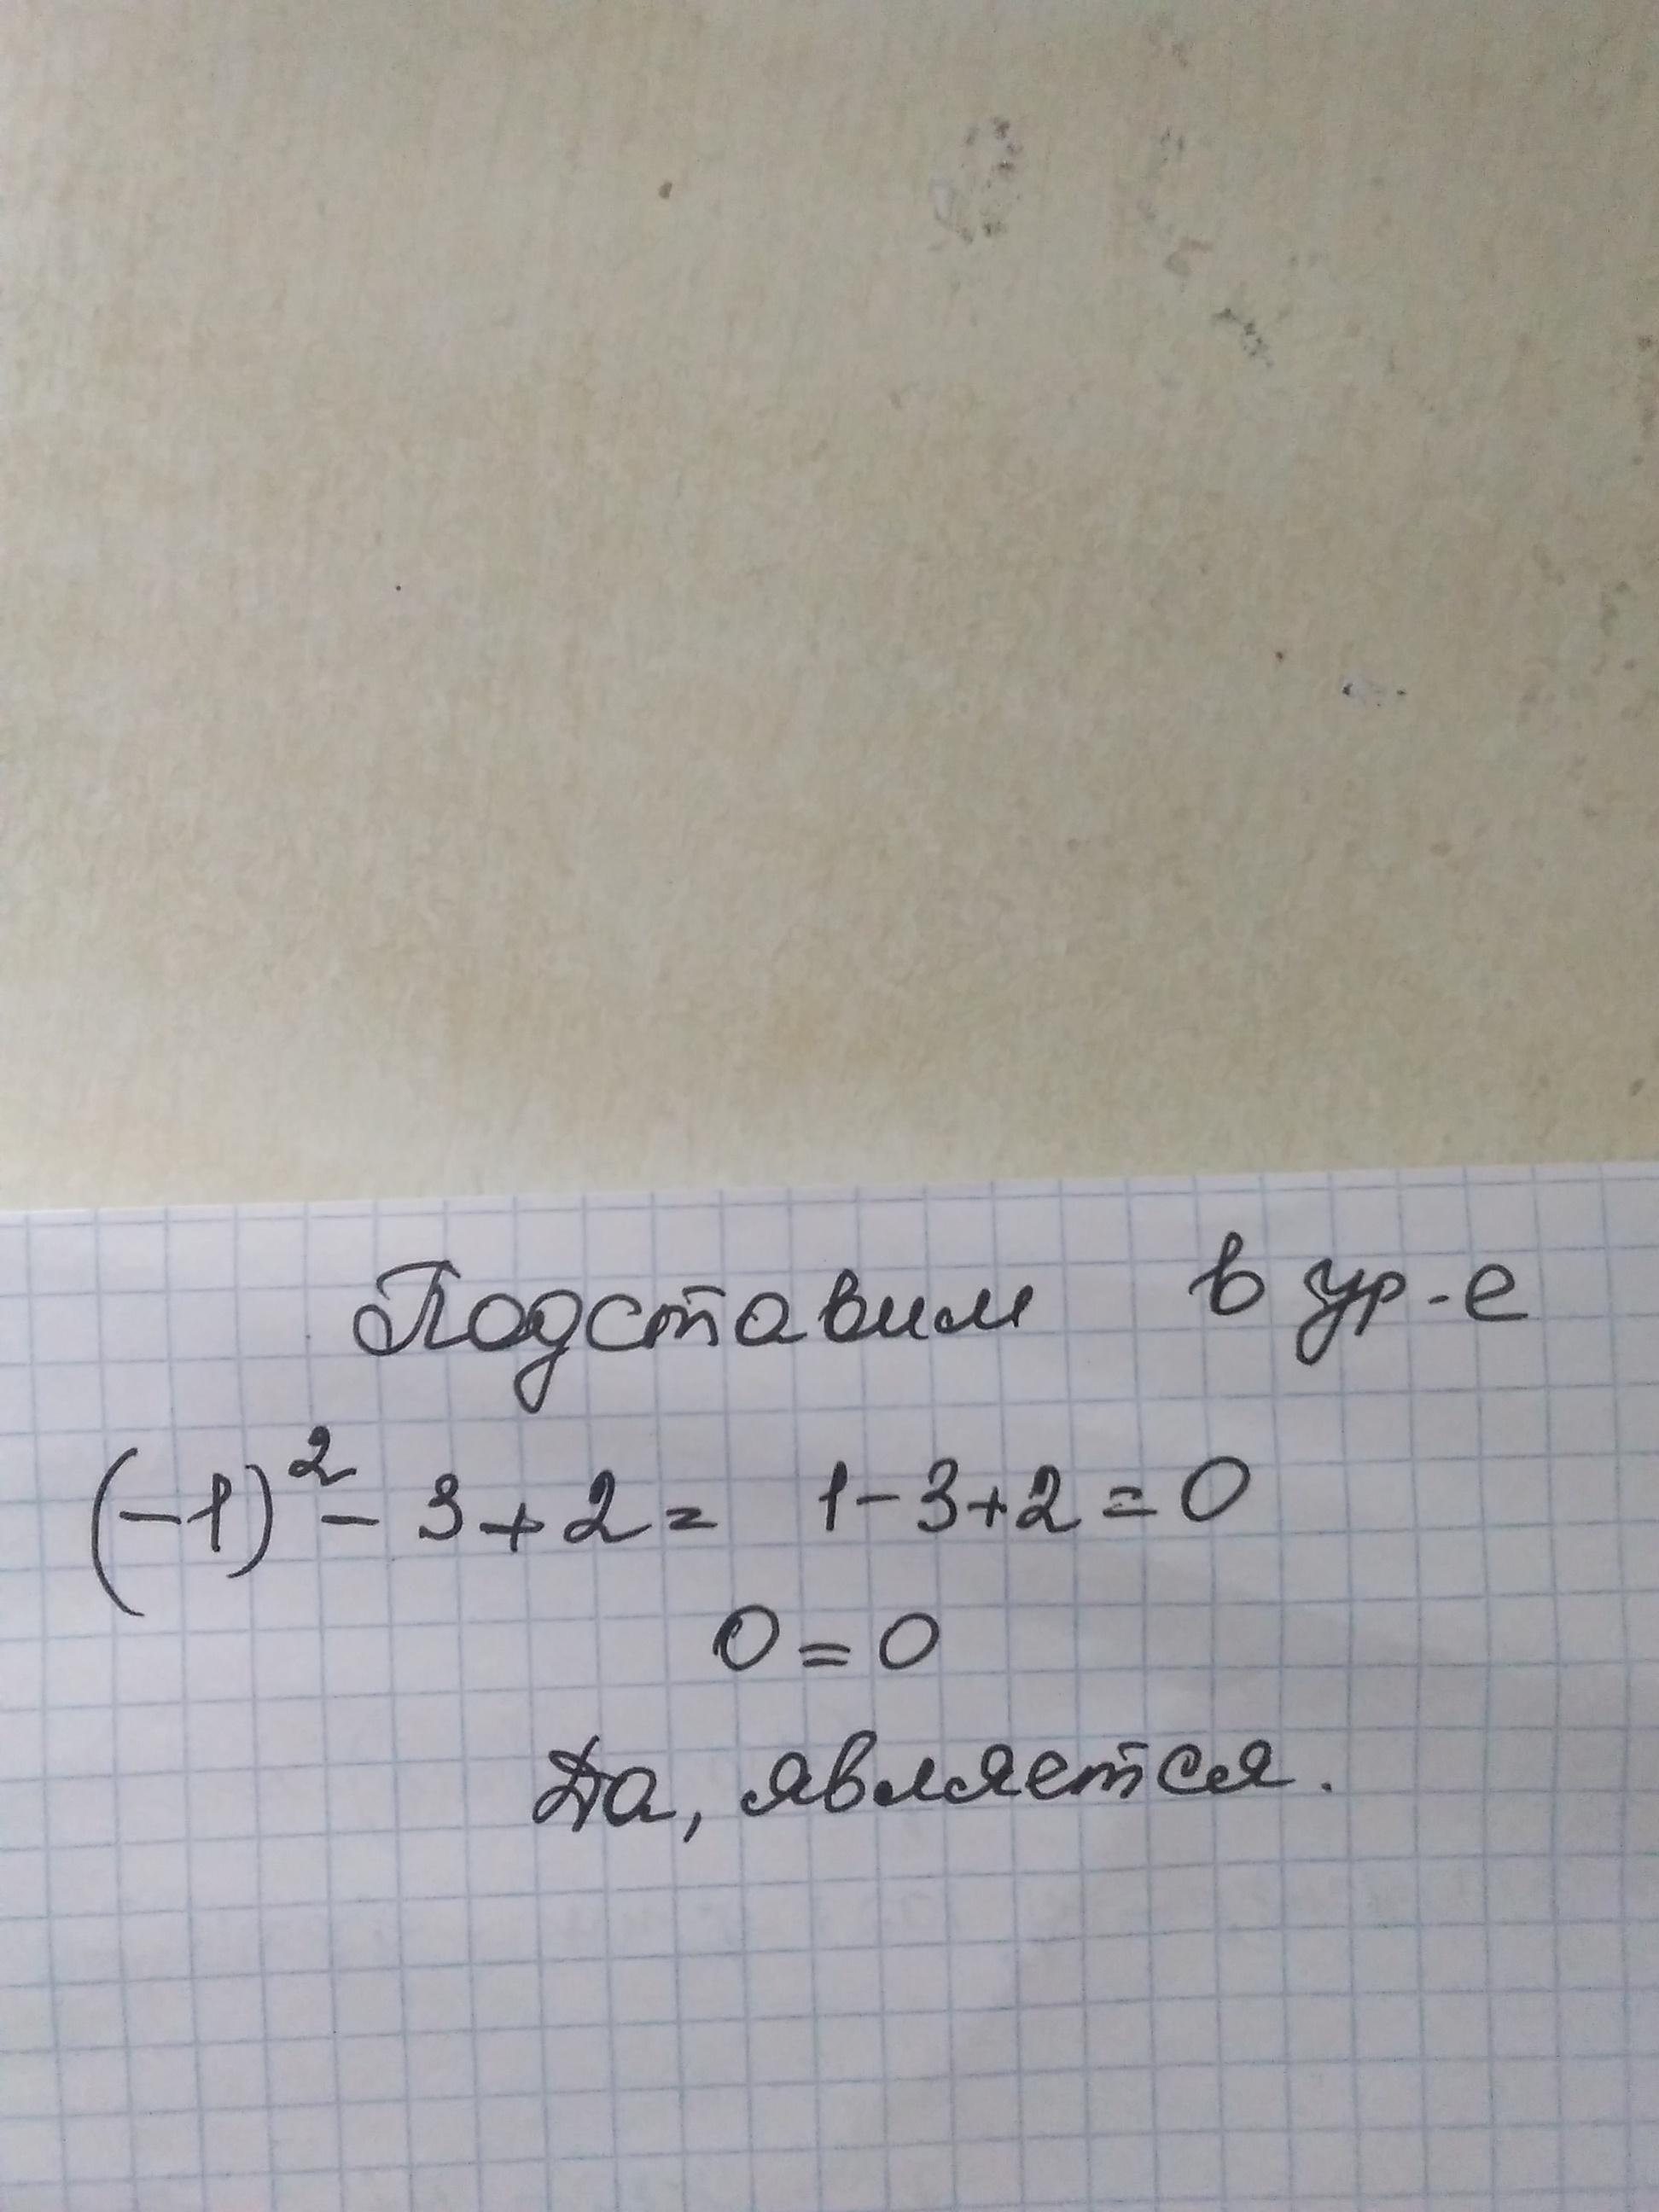 Подставим в ур-е
(-1)² - 3 + 2 = 1 - 3 + 2 = 0
0 = 0
Да, является.